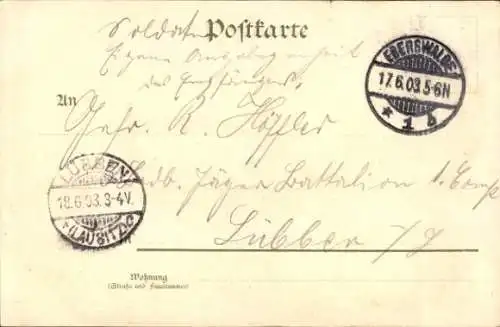 Postkarte
Soldaten
Eigene Angelegenheit
des Empfängers.
An
Gefr. R. Höffler
EBERSWALDE
17.6.03.5-6N
* 1 b
LÜBBEN
18.6.03.3-4V.
(LAUSITZ)
Jäger Battalion 1. Comp
Lübben
Wohnung
(Straße und Hausnummer)